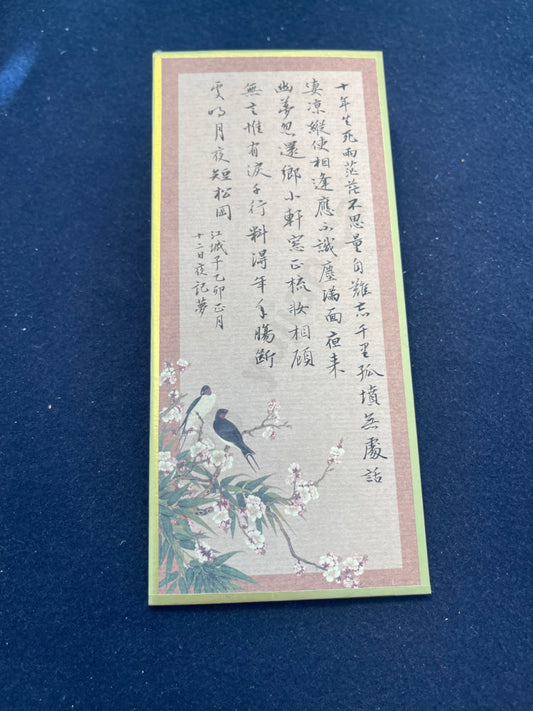 十年生死兩茫茫不思量自難忘千里孤墳無處話
凄涼縱使相逢應不識塵滿面夜来
幽夢忽還鄉小軒窓正梳妝相顧
無言惟有淚千行料得年年腸斷
處明月夜短松岡
江城子乙卯正月
十二日夜記夢